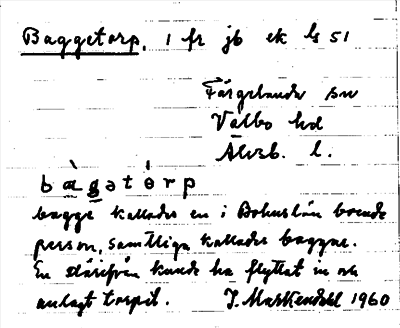 Baggetorp, 1 fr jb ek ls 51
Färgelanda sn
Valbo hd
Älvsb. l.
bàgətórp
bagge kallades en i Bohuslän boende
person, samtliga kallades baggar.
En därifrån kunde ha flyttat in och
anlagt torpet. J. Markendahl 1960